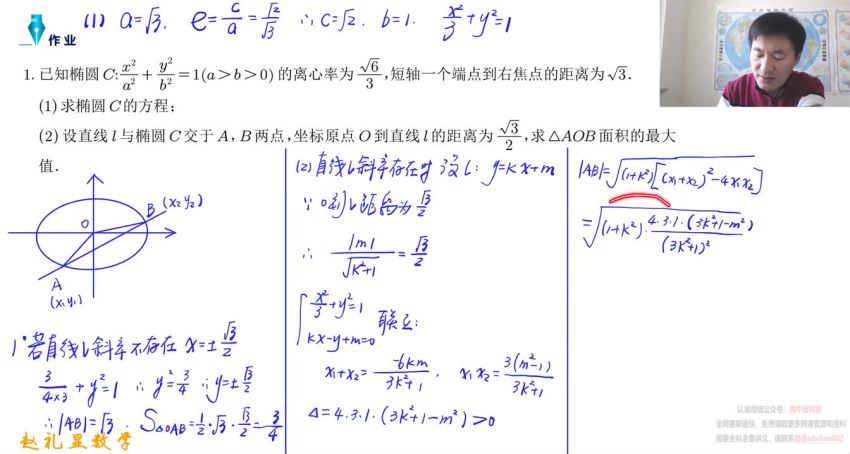 (1) a=√3. e=c/a=√2/√3 ∴c=√2. b=1. x²/3+y²=1
作业
1. 已知椭圆C:x²/a²+y²/b²=1(a>b>0)的离心率为√6/3,短轴一个端点到右焦点的距离为√3.
(1)求椭圆C的方程;
(2)设直线l与椭圆C交于A,B两点,坐标原点O到直线l的距离为√3/2,求△AOB面积的最大
值.
O
B (x₂y₂)
A
(x₁y₁)
1° 若直线l斜率不存在 x=±√3/2
3/(4×3)+y²=1 ∴y²=3/4 ∴y=±√3/2
∴|AB|=√3. S△OAB=1/2·√3·√3/2=3/4
赵礼显数学
(2)直线l斜率存在时 设l: y=kx+m
∵O到l距离为√3/2
∴ |m|/√(k²+1)=√3/2
{x²/3+y²=1
kx-y+m=0 联立:
x₁+x₂=-6km/(3k²+1), x₁x₂=3(m²-1)/(3k²+1)
Δ=4·3·1·(3k²+1-m²)>0
|AB|=√((1+k²)[(x₁+x₂)²-4x₁x₂])
=√((1+k²)·4·3·1·(3k²+1-m²)/(3k²+1)²)
认准微信公众号：高中资料君
全网更新最快，免费领取更多网课资源和资料
需要全科全套讲义，请联系微信xdwlwx002